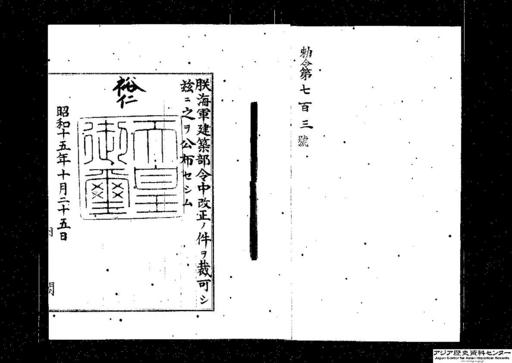 勅令第七百三號
朕海軍建築部令中改正ノ件ヲ裁可シ
玆ニ之ヲ公布セシム
裕仁
天皇御璽
昭和十五年十月二十五日
内閣
アジア歴史資料センター
Japan Center for Asian Historical Records